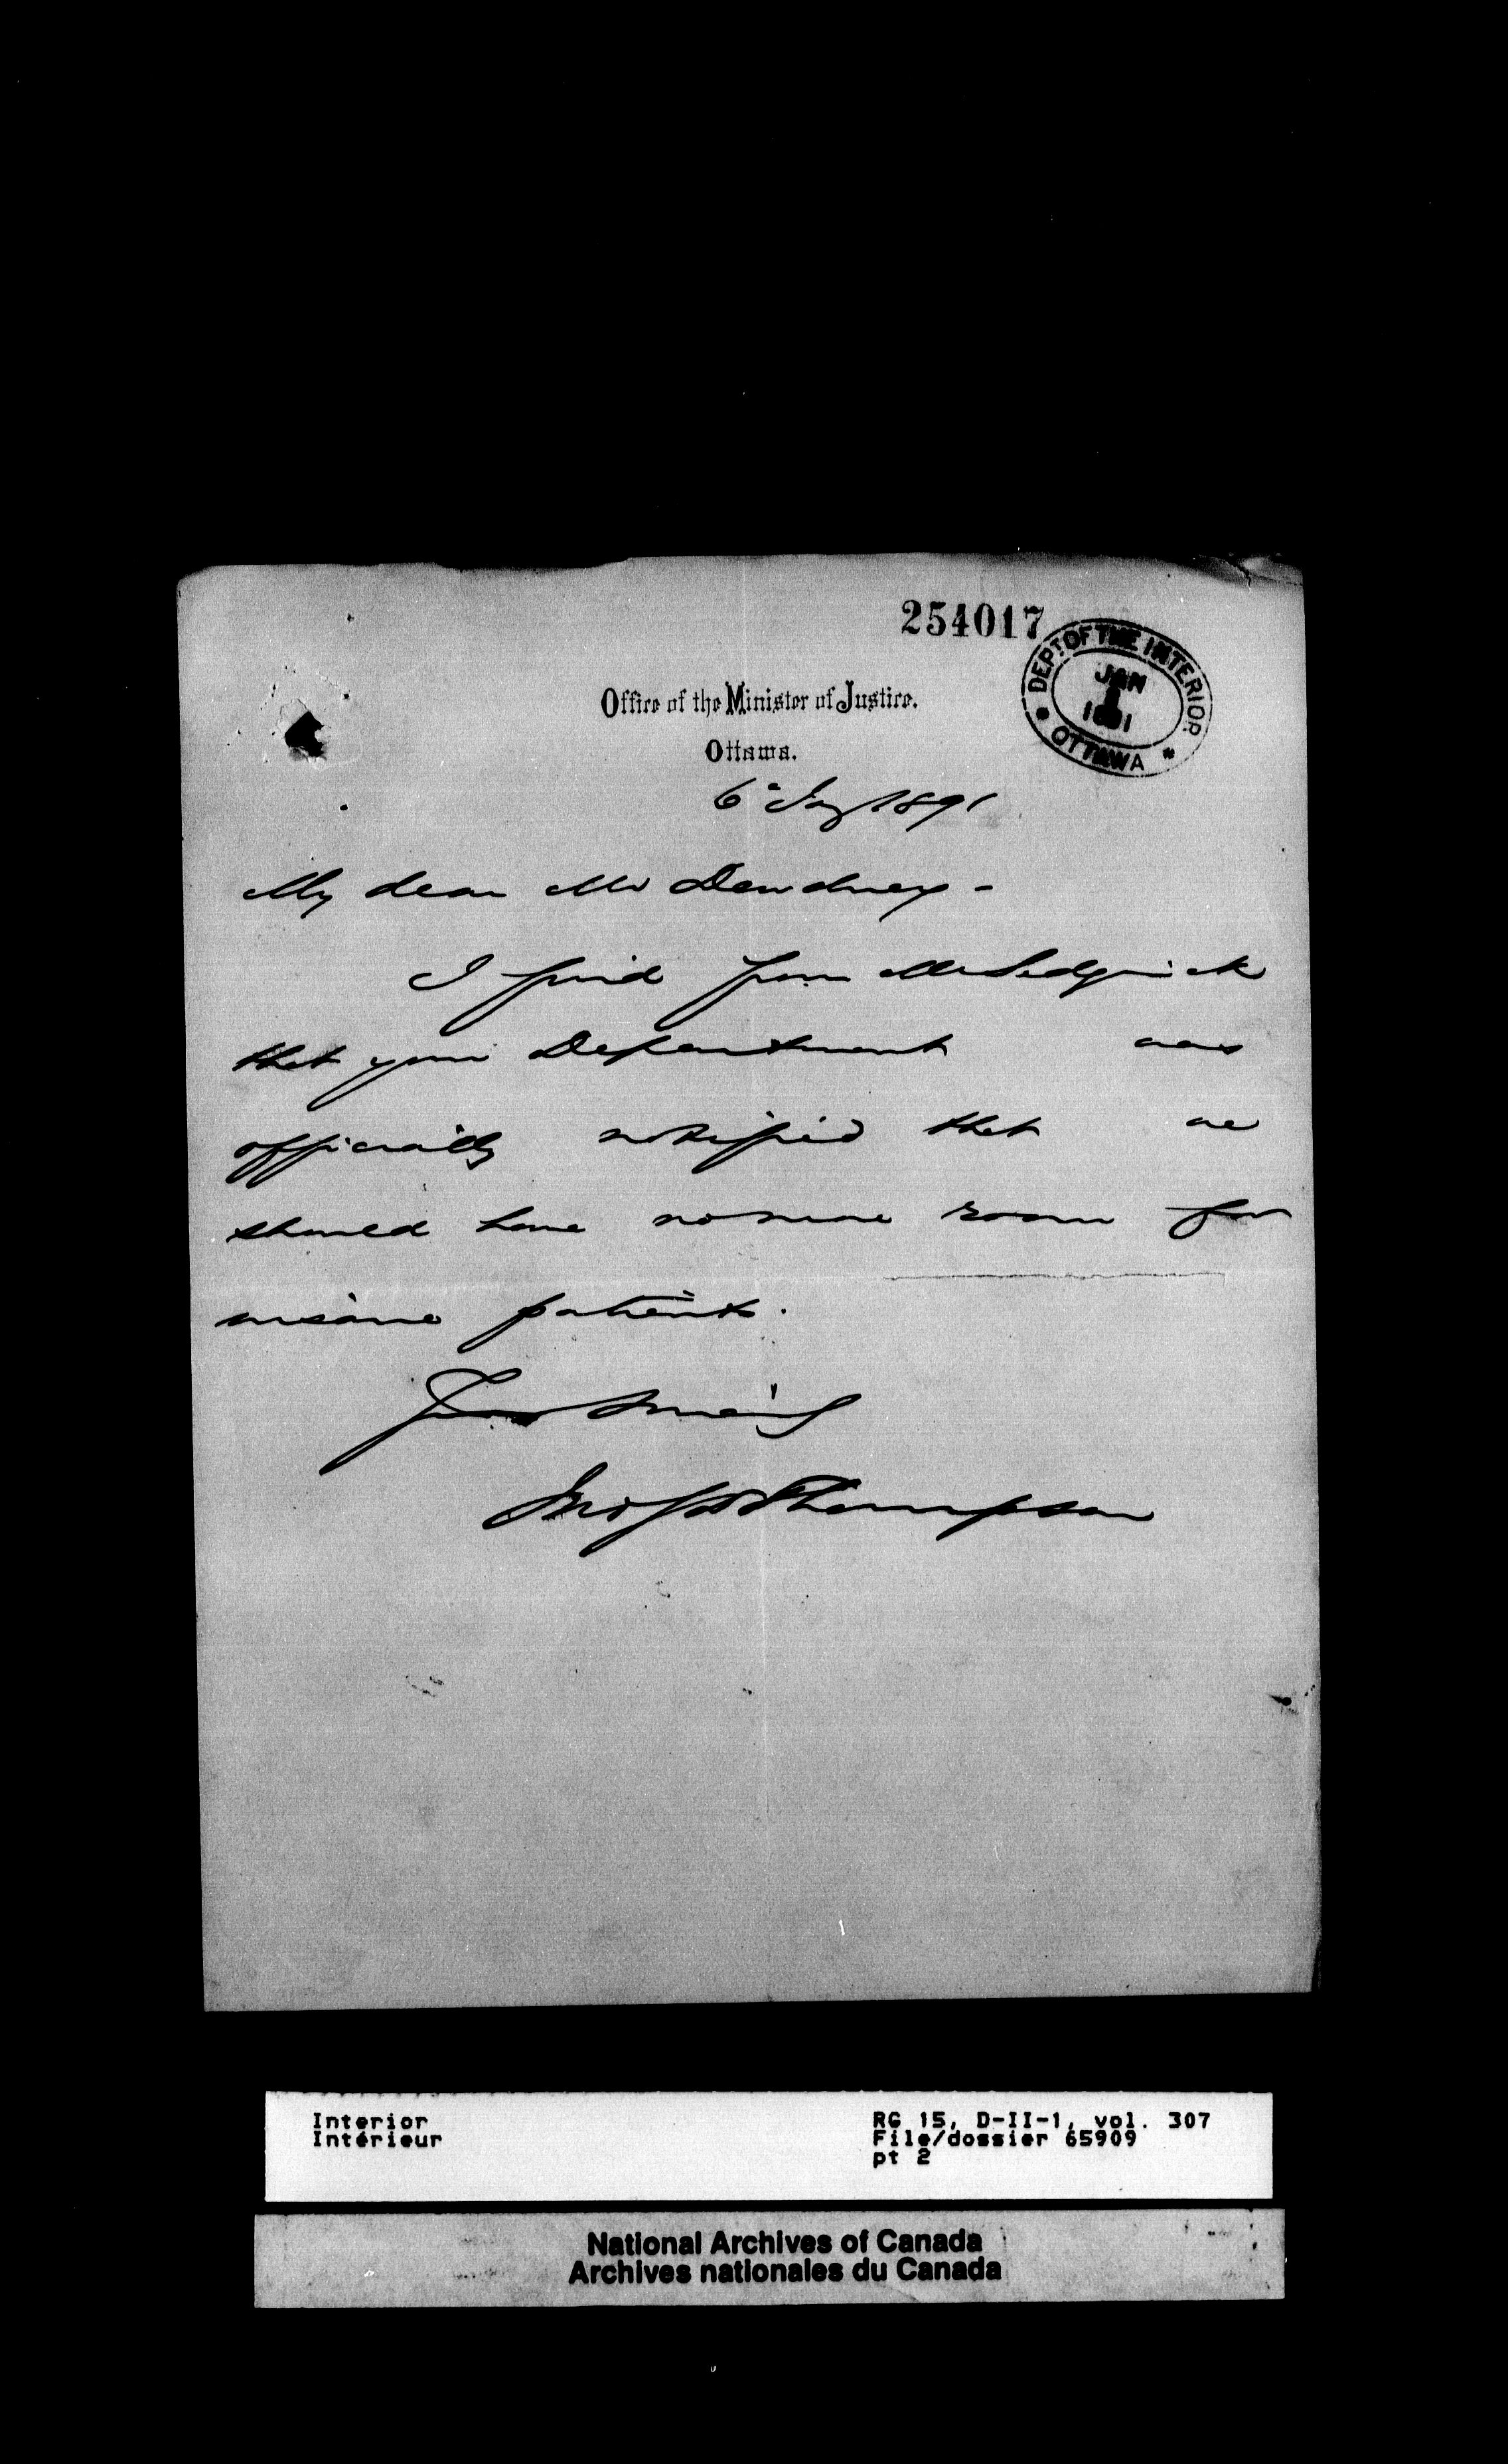 254017
DEPT OF THE INTERIOR
JAN
1891
OTTAWA
Office of the Minister of Justice.
Ottawa.
6 Jany 1891
My dear Mr Dewdney -
I find from Mr Sedgwick
that your Department was
officially notified that we
should have no more room for
insane patients.
Yours truly
Jno S D Thompson
Interior
Intérieur
RG 15, D-II-1, vol. 307
File/dossier 65909
pt 2
National Archives of Canada
Archives nationales du Canada